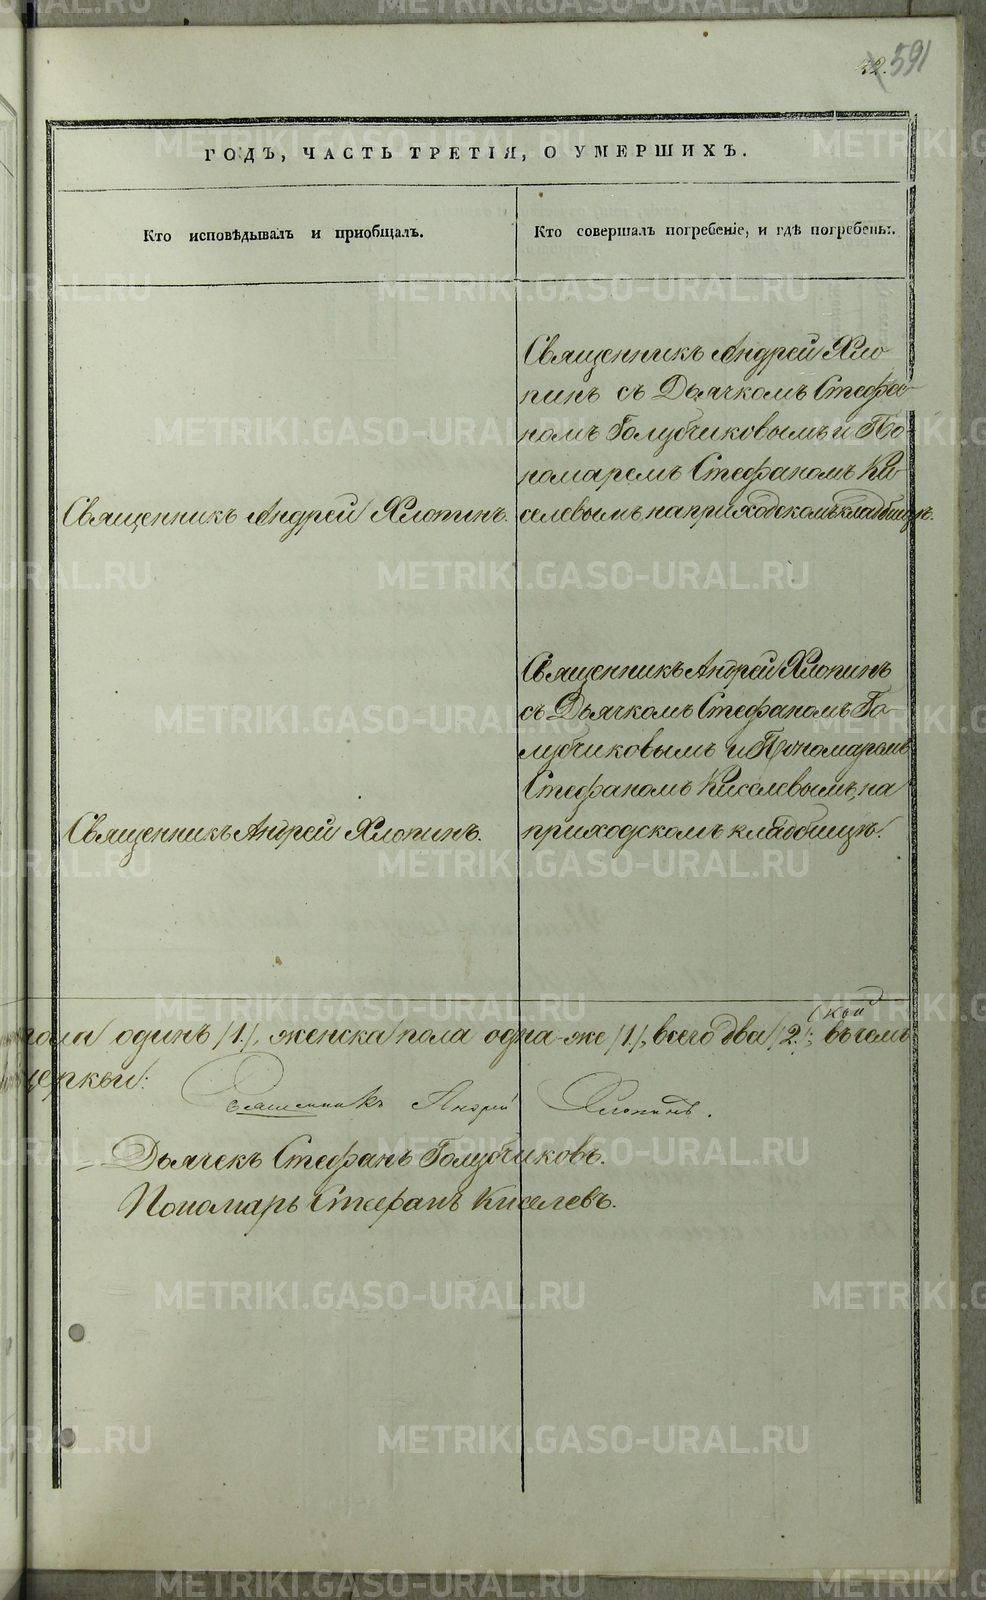 42. 591
ГОДЪ, ЧАСТЬ ТРЕТІЯ, О УМЕРШИХЪ.
Кто исповѣдывалъ и пріобщалъ.
Кто совершалъ погребеніе, и гдѣ погребены.
Священникъ Андрей Хлопинъ.
Священникъ Андрей Хло
пинъ съ Дьячкомъ Стефа-
номъ Голубчиковымъ и По-
номаремъ Стефаномъ Ки-
селевымъ на приходскомъ кладбищѣ.
Священникъ Андрей Хлопинъ.
Священникъ Андрей Хлопинъ
съ Дьячкомъ Стефаномъ Го-
лубчиковымъ и Пономаремъ
Стефаномъ Киселевымъ, на
приходскомъ кладбищѣ.
пола одинъ /1./, женска пола одна-же /1./, всего два /2./; въ томъ
церкви:
Священникъ Андрей Хлопинъ.
Дьячекъ Стефанъ Голубчиковъ.
Пономарь Стефанъ Киселевъ.
METRIKI.GASO-URAL.RU